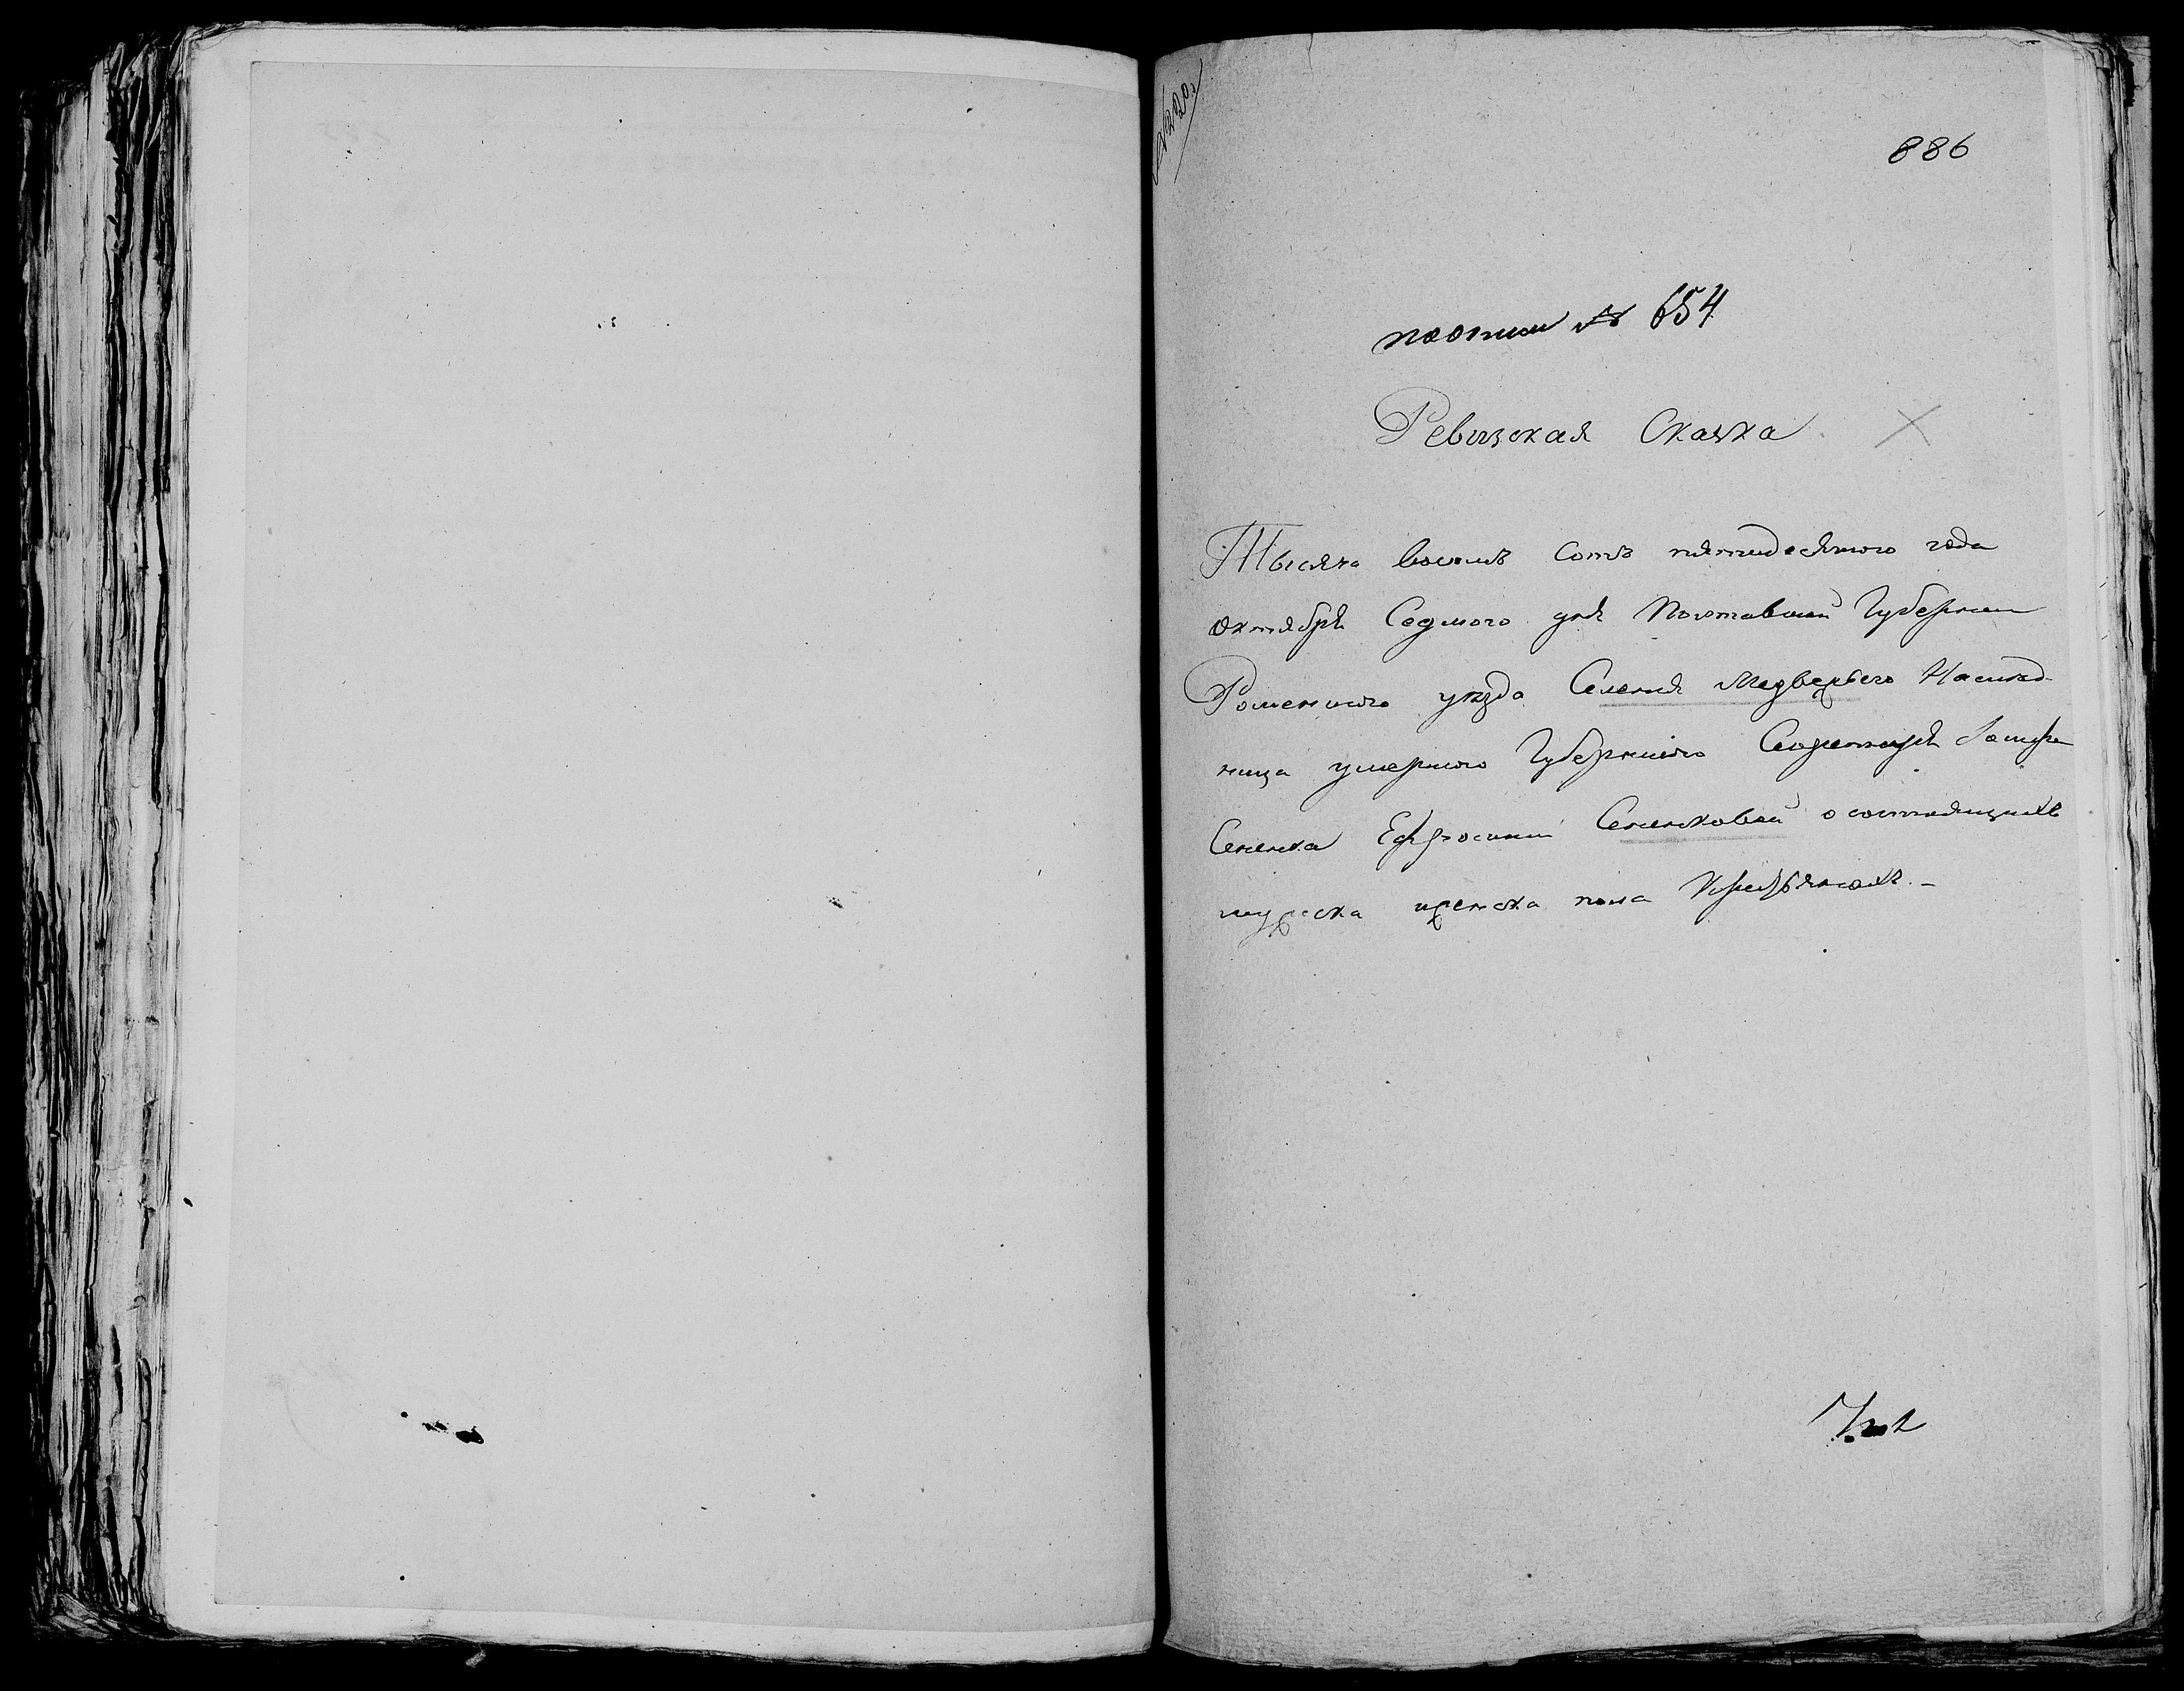 886
по описи № 654
Ревизская Сказка
Тысяча восемь сотъ пятидесятого года
октября Седмого дня Полтавской Губернии
Роменского уѣзда Селения Медвежьего Наслѣд-
ницы умершого Губернского Секретаря
Сененка Ефросинии Сененковой о состоящихъ
мужеска и женска пола Крестьянахъ. -